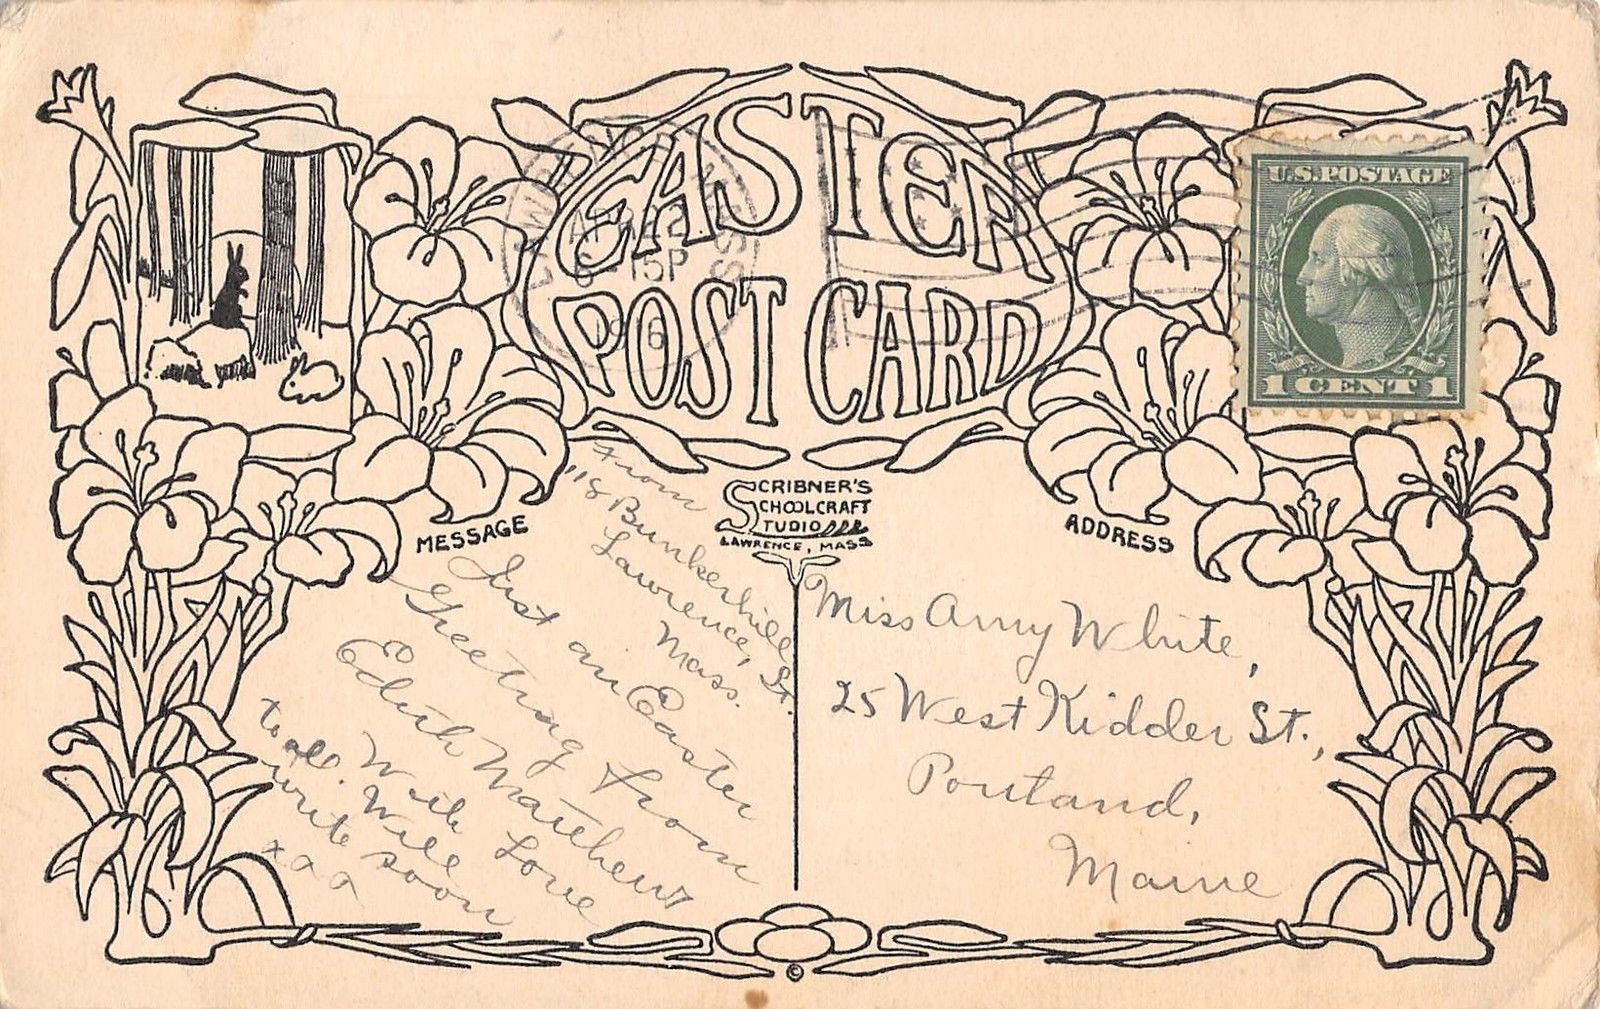 EASTER
POST CARD
LAWRENCE MASS
APR
6-15P
1916
U.S. POSTAGE
1 CENT 1
SCRIBNER'S
SCHOOLCRAFT
STUDIO
LAWRENCE, MASS
MESSAGE
From
118 Bunkerhill St.
Lawrence,
Mass.
Just an Easter
Greeting from
Edith Mathews
to all. With Love
Will
write soon
x x x
ADDRESS
Miss Amy White,
25 West Kidder St.,
Portland,
Maine
©